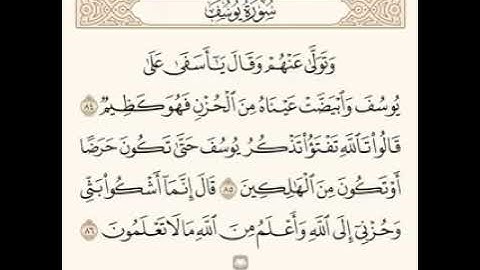 سُورَةُ يُوسُفَ
وَتَوَلَّىٰ عَنْهُمْ وَقَالَ يَٰٓأَسَفَىٰ عَلَىٰ
يُوسُفَ وَٱبْيَضَّتْ عَيْنَاهُ مِنَ ٱلْحُزْنِ فَهُوَ كَظِيمٌ ٨٤
قَالُوا۟ تَٱللَّهِ تَفْتَؤُا۟ تَذْكُرُ يُوسُفَ حَتَّىٰ تَكُونَ حَرَضًا
أَوْ تَكُونَ مِنَ ٱلْهَٰلِكِينَ ٨٥ قَالَ إِنَّمَآ أَشْكُوا۟ بَثِّى
وَحُزْنِىٓ إِلَى ٱللَّهِ وَأَعْلَمُ مِنَ ٱللَّهِ مَا لَا تَعْلَمُونَ ٨٦